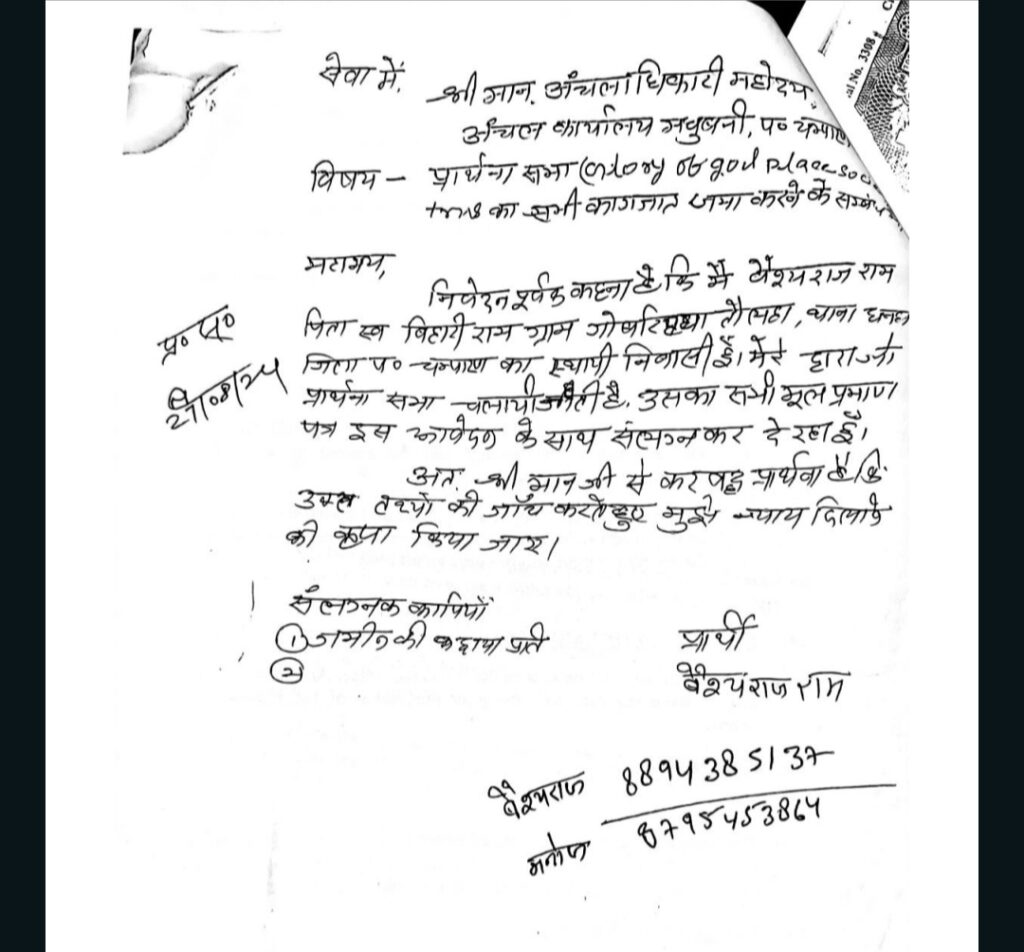 सेवा में,
श्री मान. अंचलाधिकारी महोदय,
अंचल कार्यालय मधुबनी, प० चम्पारण
विषय - प्रार्थना सभा (Glory of god place
का सभी कागजात जमा करने के सम्बंध
महाशय,
निवेदन पूर्वक कहना है कि मैं वैश्यराज राम
पिता स्व बिहारी राम ग्राम तौलहा, थाना धनहा
जिला प० चम्पारण का स्थायी निवासी हूँ। मेरे द्वारा जो
प्रार्थना सभा चलायी जाती है, उसका सभी मूल प्रमाण
पत्र इस आवेदन के साथ संलग्न कर दे रहा हूँ।
अत. श्री मान जी से कर बद्ध प्रार्थना है कि
उक्त तथ्यों की जाँच करते हुए मुझे न्याय दिलाने
की कृपा किया जाए।
संलग्नक कापियाँ
① जमीन की प्रति
②
प्रार्थी
वैश्यराज राम
वैश्यराज 8894385137
मनोज 8795453864
प्र० प्र०
27/08/24
No. 3308